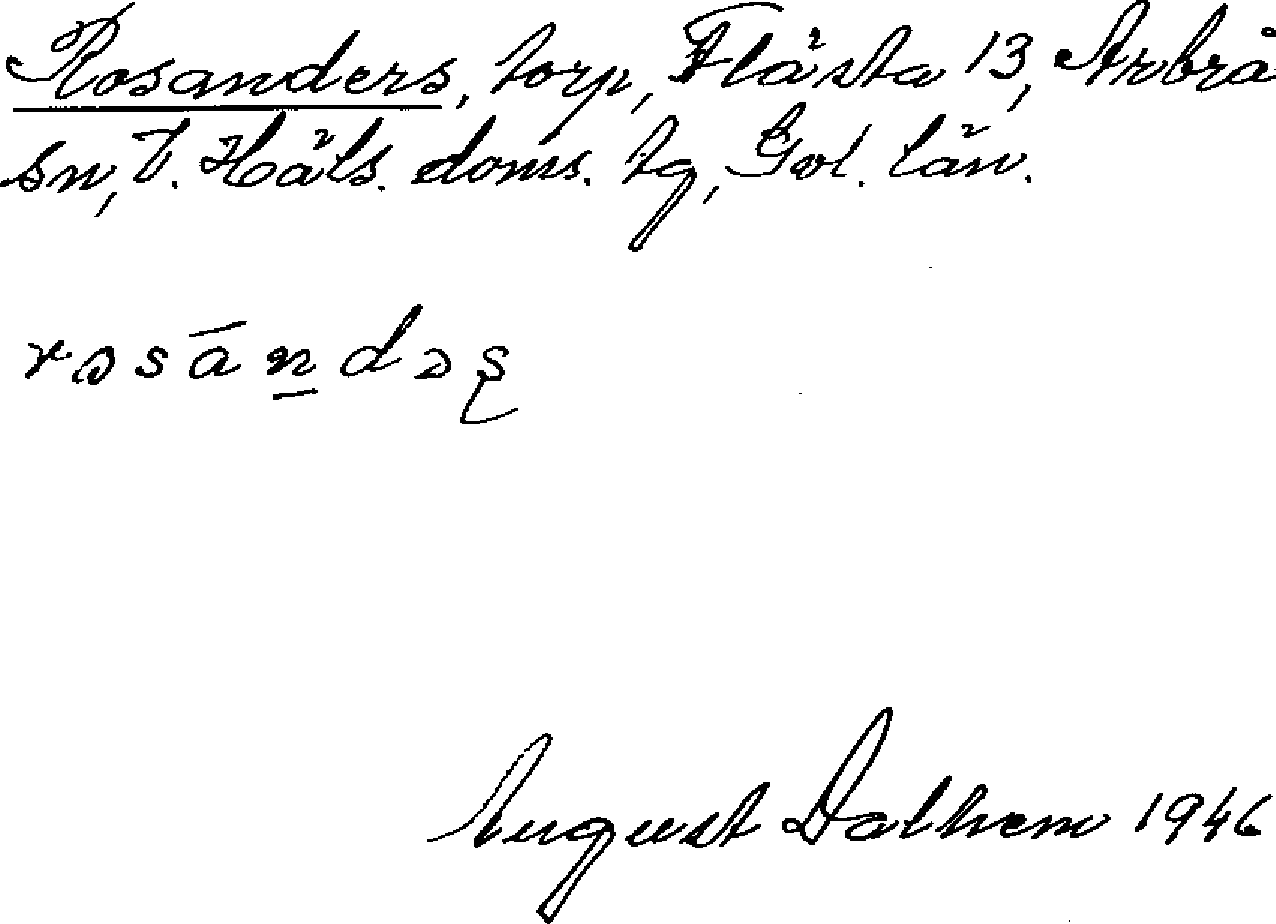 Rosanders, torp, Flästa 13, Arbrå
sn, V. Häls. doms. tg, Gvl. län.
rɷsāṉdəʂ
August Dalhem 1946